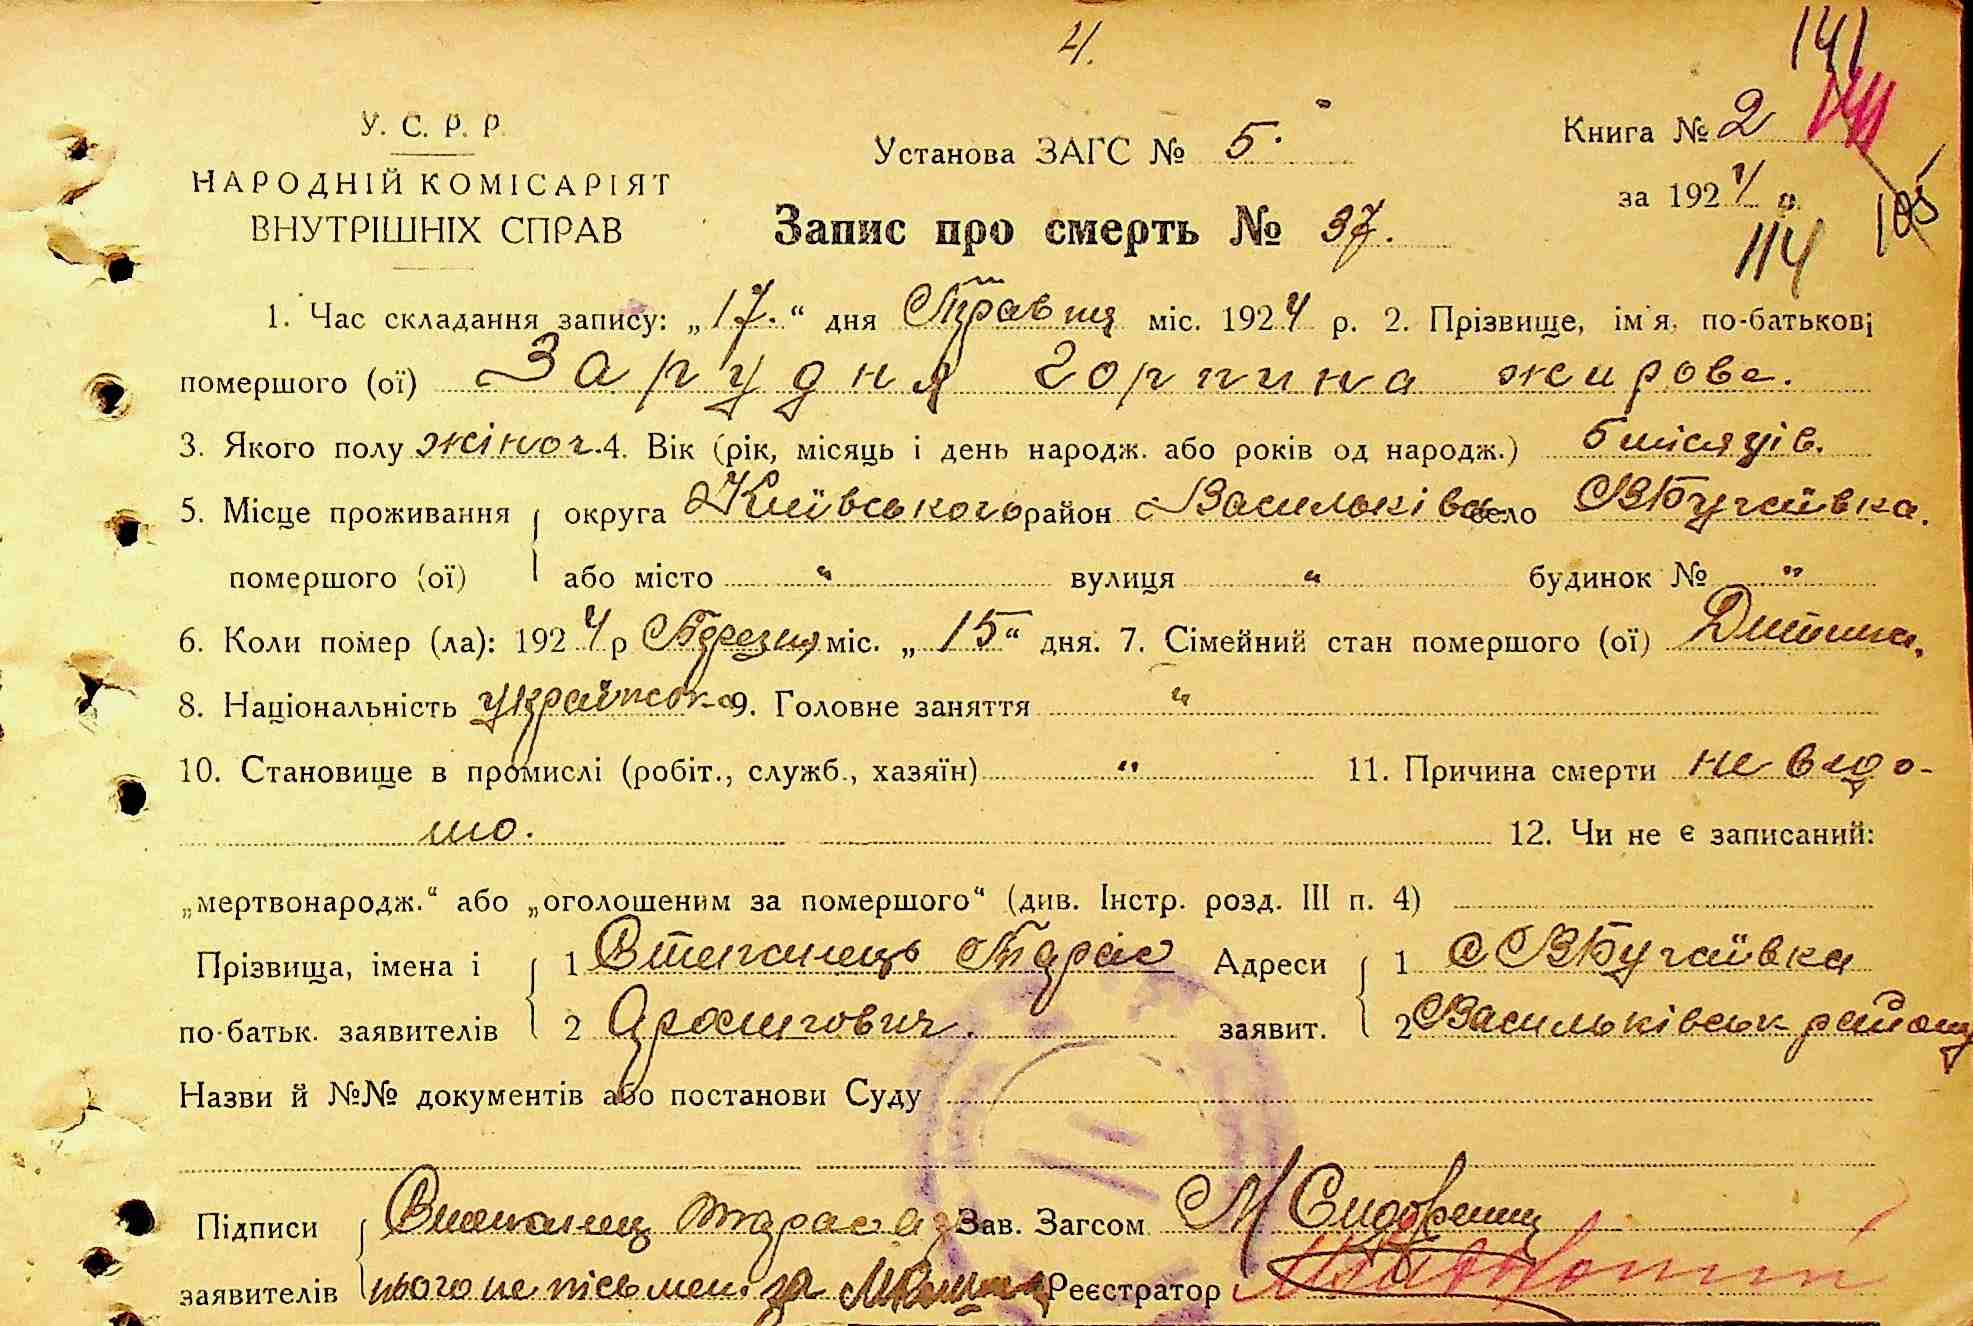 4.
141
У. С. Р. Р.
НАРОДНІЙ КОМІСАРІЯТ
ВНУТРІШНІХ СПРАВ
Установа ЗАГС № 5.
Книга № 2
за 1924 р.
105
114
Запис про смерть № 37.
1. Час складання запису: „17.“ дня Травця міс. 1924 р. 2. Прізвище, ім'я, по-батькові
помершого (ої) Зарудня Горпина
3. Якого полу жіноч. 4. Вік (рік, місяць і день народж. або років од народж.) 5 місяців.
5. Місце проживання округа Київського район Васильків село В Бугаївка.
помершого (ої) або місто „ вулиця „ будинок № „
6. Коли помер (ла): 1924 р Березня міс. „15“ дня. 7. Сімейний стан помершого (ої) Дитина.
8. Національність українська 9. Головне заняття „
10. Становище в промислі (робіт., служб., хазяїн) „ 11. Причина смерти не відо-
мо. 12. Чи не є записаний:
„мертвонародж.“ або „оголошеним за помершого“ (див. Інстр. розд. III п. 4)
Прізвища, імена і 1 Тарас Адреси 1 С В Бугаївка
по-батьк. заявителів 2 заявит. 2 Васильківськ району
Назви й №№ документів або постанови Суду
Підписи Тараса а за Зав. Загсом М Сидоренко
заявителів нього не пісьмен. за Реєстратор